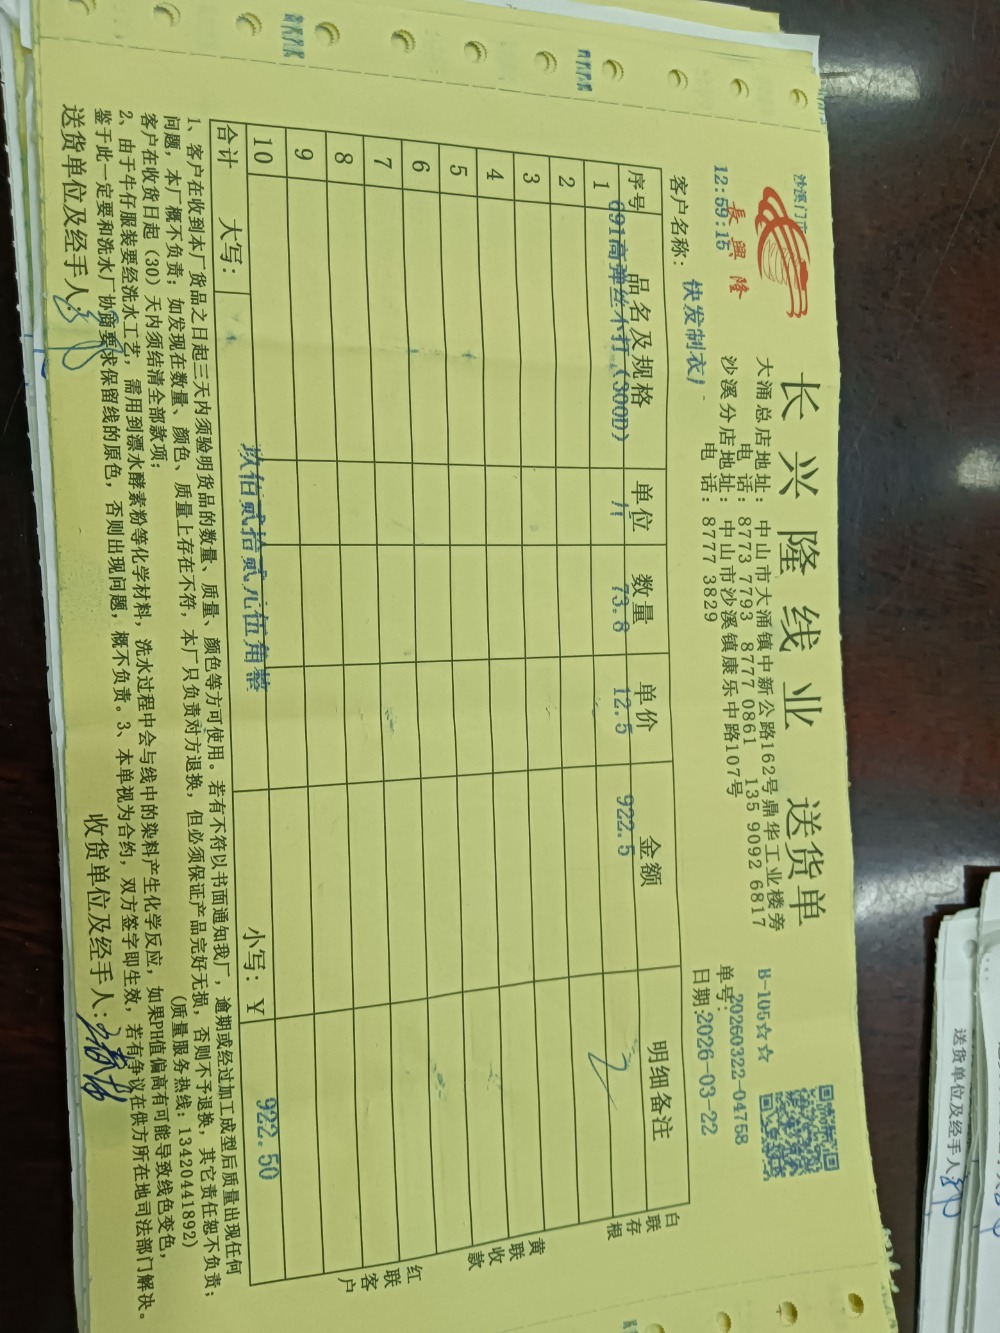 沙溪门市
12:59:15
長興隆
长兴隆线业 送货单
大涌总店地址：中山市大涌镇中新公路162号鼎华工业楼旁
电 话：8773 7793 8777 0861 135 9092 6817
沙溪分店地址：中山市沙溪镇康乐中路107号
电 话：8777 3829
B-105☆☆
单号：20260322-04758
日期：2026-03-22
客户名称：快发制衣厂
序号 品名及规格 单位 数量 单价 金额 明细备注
1 691高弹丝不打（300D） 73.8 12.5 922.5
2
3
4
5
6
7
8
9
10
合计 大写：玖佰贰拾贰元伍角整 小写：￥ 922.50
白联存根
黄联收款
红联客户
1、客户在收到本厂货品之日起三天内须验明货品的数量、质量、颜色等方可使用。若有不符以书面通知我厂，逾期或经过加工成型后质量出现任何
问题，本厂概不负责；如发现在数量、颜色、质量上存在不符，本厂只负责对方退换，但必须保证产品完好无损，否则不予退换，其它责任恕不负责；
客户在收货日起（30）天内须结清全部款项； （质量服务热线：13420441892）
2、由于牛仔服装要经洗水工艺，需用到漂水酵素粉等化学材料，洗水过程中会与线中的染料产生化学反应，如果PH值偏高有可能导致线色变色，
鉴于此一定要和洗水厂协商要求保留线的原色，否则出现问题，概不负责。3、本单视为合约，双方签字即生效，若有争议在供方所在地司法部门解决。
送货单位及经手人： 收货单位及经手人：
送货单位及经手人